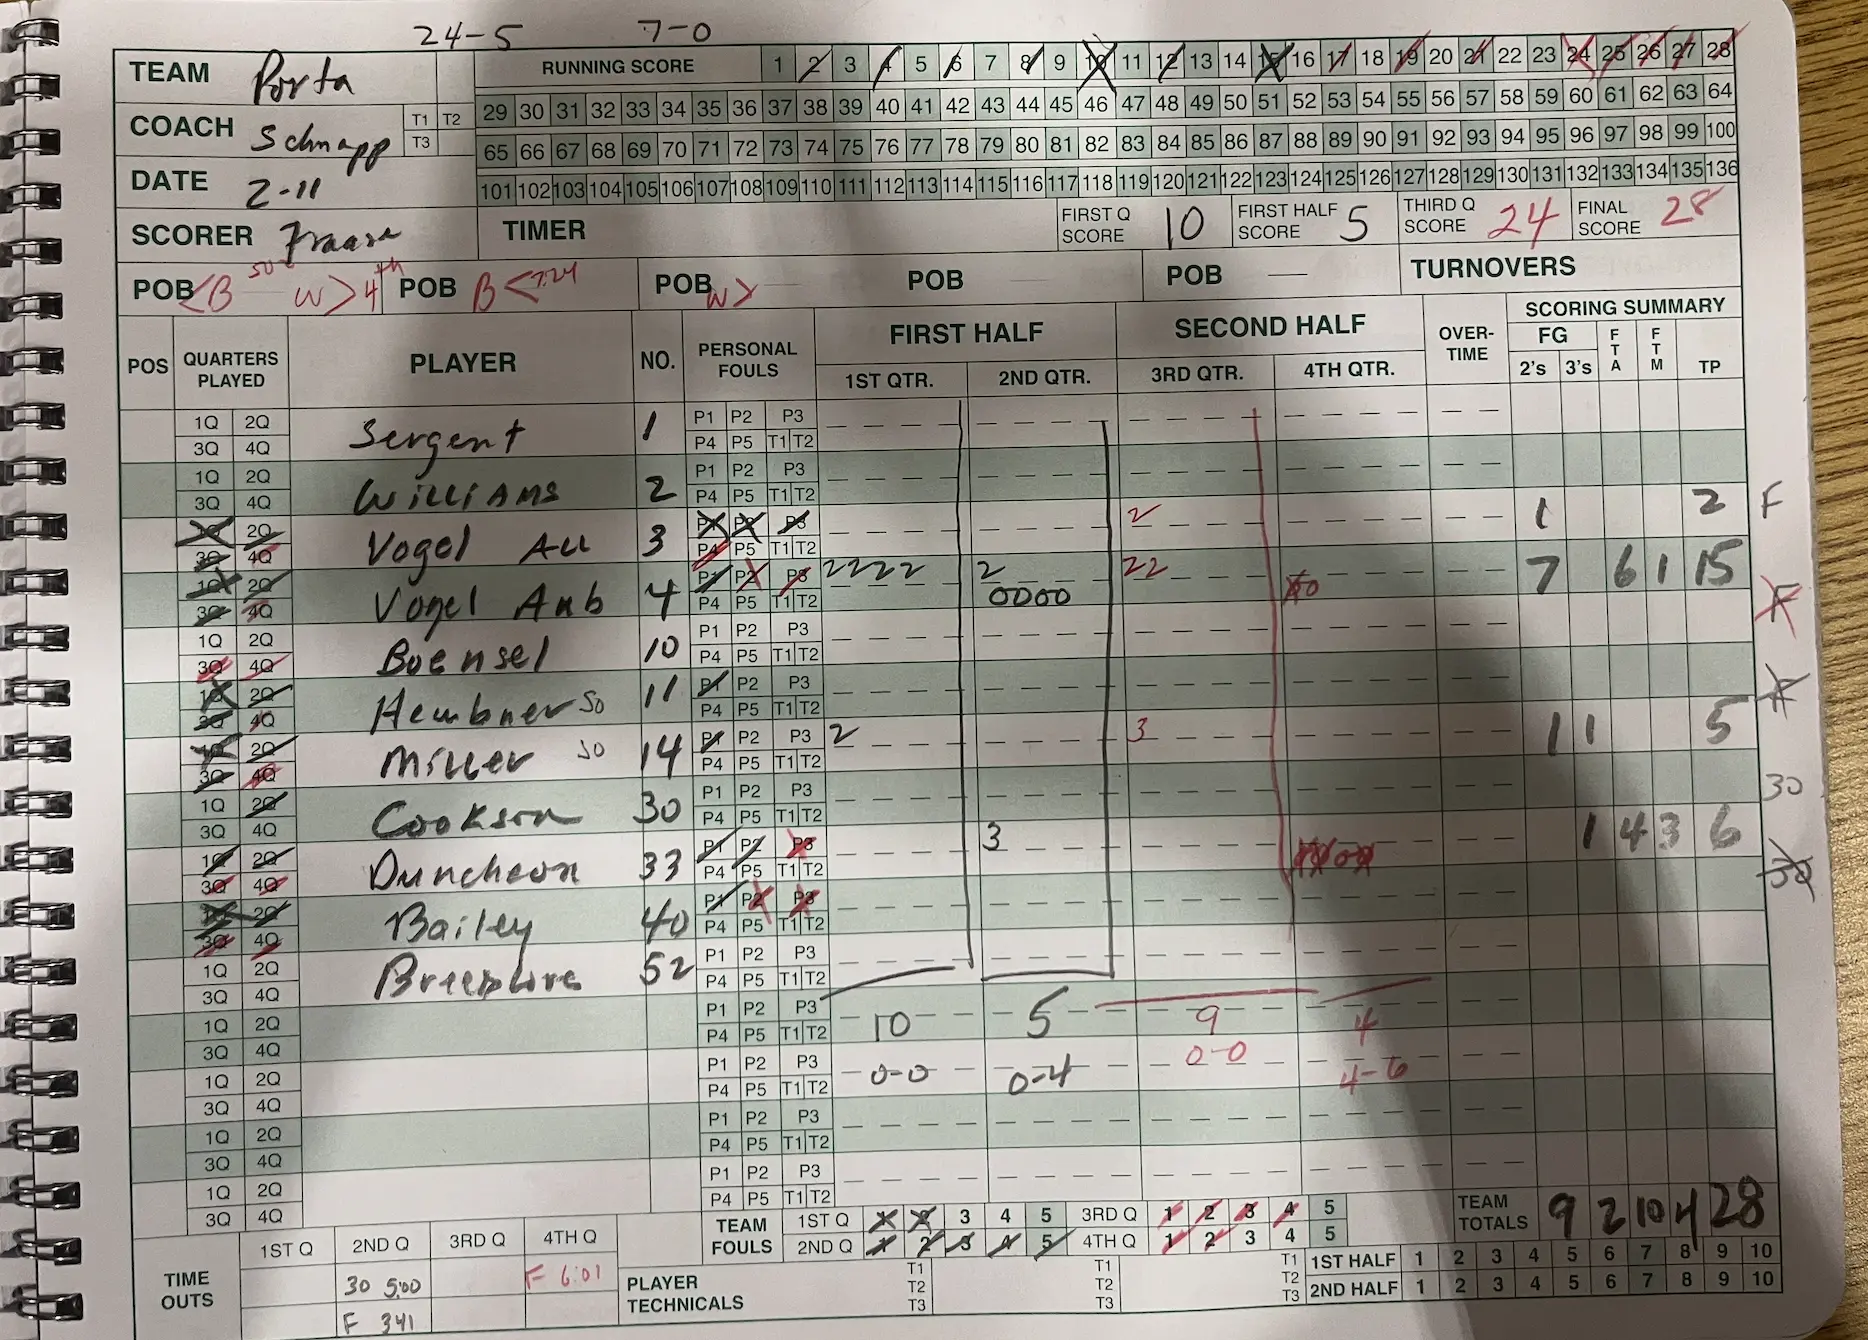 24-5 7-0
TEAM Porta RUNNING SCORE 1 2 3 4 5 6 7 8 9 10 11 12 13 14 15 16 17 18 19 20 21 22 23 24 25 26 27 28
29 30 31 32 33 34 35 36 37 38 39 40 41 42 43 44 45 46 47 48 49 50 51 52 53 54 55 56 57 58 59 60 61 62 63 64
COACH Schnapp T1 T2 T3
65 66 67 68 69 70 71 72 73 74 75 76 77 78 79 80 81 82 83 84 85 86 87 88 89 90 91 92 93 94 95 96 97 98 99 100
DATE 2-11
101 102 103 104 105 106 107 108 109 110 111 112 113 114 115 116 117 118 119 120 121 122 123 124 125 126 127 128 129 130 131 132 133 134 135 136
SCORER TIMER FIRST Q SCORE 10 FIRST HALF SCORE 5 THIRD Q SCORE 24 FINAL SCORE 28
POB <B W> 4th POB B< 7:24 POB W> POB POB — TURNOVERS
POS QUARTERS PLAYED PLAYER NO. PERSONAL FOULS FIRST HALF SECOND HALF OVER-TIME SCORING SUMMARY
1ST QTR. 2ND QTR. 3RD QTR. 4TH QTR. FG 2's 3's FTA FTM TP
1Q 2Q Sergent 1 P1 P2 P3
3Q 4Q P4 P5 T1 T2
1Q 2Q Williams 2 P1 P2 P3
3Q 4Q P4 P5 T1 T2
1Q 2Q Vogel All 3 P1 P2 P3 2 1 2 F
3Q 4Q P4 P5 T1 T2
1Q 2Q Vogel Anb 4 P1 P2 P3 2222 2 22 7 6 1 15
3Q 4Q P4 P5 T1 T2 0000 F
1Q 2Q Boensel 10 P1 P2 P3
3Q 4Q P4 P5 T1 T2
1Q 2Q Hembner So 11 P1 P2 P3 F
3Q 4Q P4 P5 T1 T2
1Q 2Q Miller So 14 P1 P2 P3 2 3 1 1 5
3Q 4Q P4 P5 T1 T2
1Q 2Q Cookson 30 P1 P2 P3 30
3Q 4Q P4 P5 T1 T2
1Q 2Q Duncheon 33 P1 P2 P3 3 1 4 3 6
3Q 4Q P4 P5 T1 T2 30
1Q 2Q Bailey 40 P1 P2 P3
3Q 4Q P4 P5 T1 T2
1Q 2Q 52 P1 P2 P3
3Q 4Q P4 P5 T1 T2
1Q 2Q P1 P2 P3 10 5 9 4
3Q 4Q P4 P5 T1 T2
1Q 2Q P1 P2 P3 0-0 0-4 0-0 4-6
3Q 4Q P4 P5 T1 T2
1Q 2Q P1 P2 P3
3Q 4Q P4 P5 T1 T2
1Q 2Q P1 P2 P3
3Q 4Q P4 P5 T1 T2
TEAM FOULS 1ST Q 1 2 3 4 5 3RD Q 1 2 3 4 5 TEAM TOTALS 9 2 10 4 28
2ND Q 1 2 3 4 5 4TH Q 1 2 3 4 5
TIME OUTS 1ST Q 2ND Q 3RD Q 4TH Q
30 5:00 F 6:01
F 341
PLAYER TECHNICALS T1 T2 T3 T1 T2 T3 T1 T2 T3
1ST HALF 1 2 3 4 5 6 7 8 9 10
2ND HALF 1 2 3 4 5 6 7 8 9 10